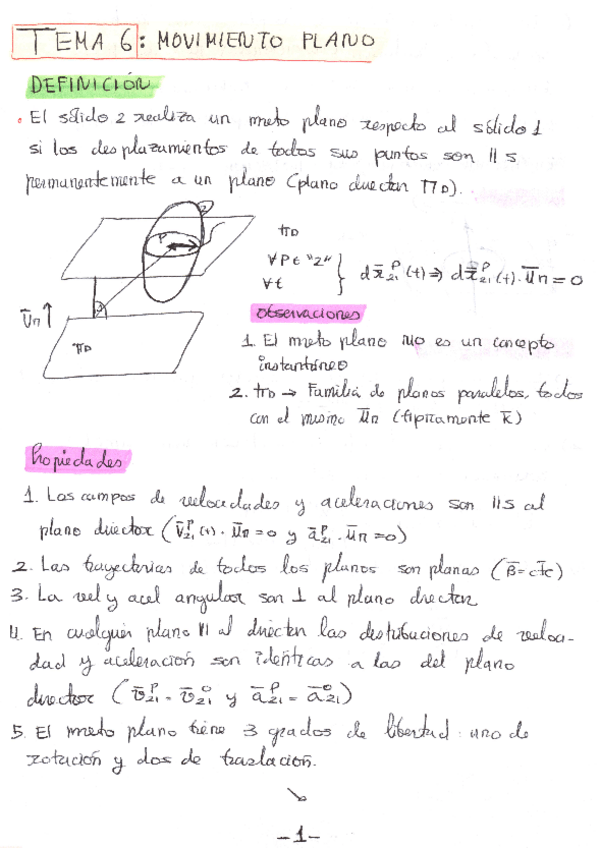 TEMA 6: MOVIMIENTO PLANO
DEFINICIÓN
• El sólido 2 realiza un mvto plano respecto al sólido 1
si los desplazamientos de todos sus puntos son ||s
permanentemente a un plano (plano director πD).
2
P
πD
∀P∈"2"
∀t
} dx̄ᴾ₂₁(t) ⇒ dx̄ᴾ₂₁(t)·ūn = 0
ūn ↑
πD
observaciones
1. El mvto plano NO es un concepto
instantáneo
2. πD → Familia de planos paralelos, todos
con el mismo ūn (típicamente k̄)
Propiedades
1. Los campos de velocidades y aceleraciones son ||s al
plano director (v̄ᴾ₂₁(t)·ūn = 0 y āᴾ₂₁·ūn = 0)
2. Las trayectorias de todos los planos son planas (B̄ = cte)
3. La vel y acel angular son ⊥ al plano director
4. En cualquier plano || al director las distribuciones de veloci-
dad y aceleración son idénticas a las del plano
director (v̄ᴾ₂₁ = v̄ᴼ₂₁ y āᴾ₂₁ = āᴼ₂₁)
5. El mvto plano tiene 3 grados de libertad: uno de
rotación y dos de traslación.
↘
-1-